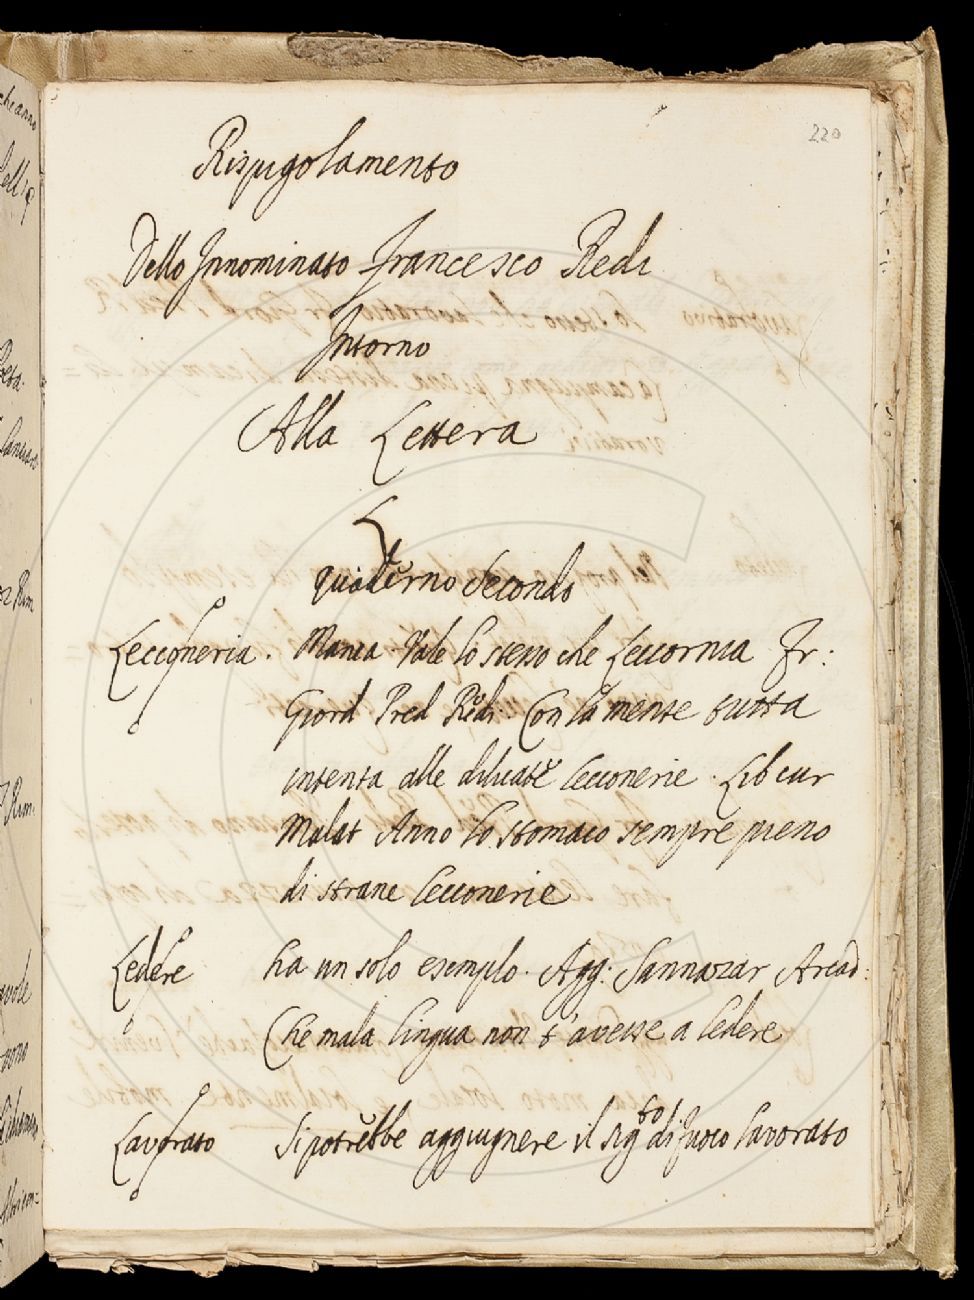 220
Rispigolamento
Dello Innominato Francesco Redi
Intorno
Alla Lettera
L
quaderno secondo
Lecconeria. Manca Vale lo stesso che Leccornia Fr:
Giord Pred Redi: Con la mente tutta
intenta alle dilicate lecconerie. Lib cur
Malat Anno lo stomaco sempre pieno
di strane lecconerie
Ledere ha un solo esemplo. Agg: Sannazzar Arcad:
Che mala lingua non t'avesse a ledere
Lavorato Si potrebbe aggiugnere il sigto di fuoco lavorato